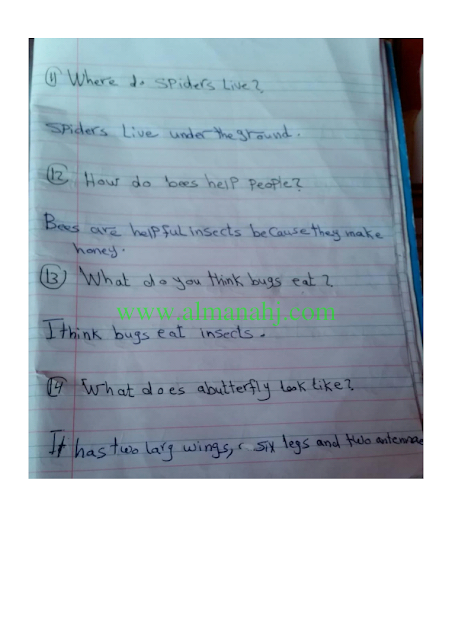 11 Where do spiders Live?
spiders Live under the ground.
12 How do bees help people?
Bees are helpful insects because they make
honey.
13 What do you think bugs eat?
www.almanahj.com
I think bugs eat insects.
14 What does abutterfly look like?
It has two larg wings, six legs and two antennae